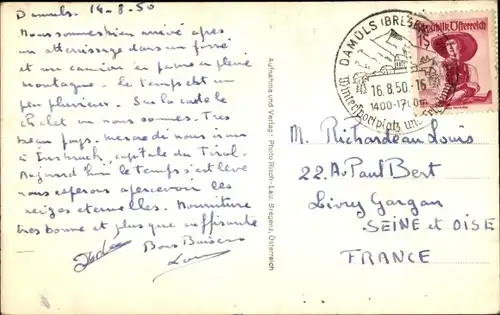 Damuls. 14-8.50
Nous sommes bien arrivé après
un atterrissage dans un fossé
et un camion en panne en pleine
montagne. le temps est un
peu pluvieux. Sur la carte le
chalet ou nous sommes. Très
beau pays. Mercredi nous irons
à Insbruck, capitale du Tirol.
Aujourd'hui le temps s'est levé
nous espérons apercevoir les
neiges eternelles. Nourriture
très bonne et plus que suffisante
Bons Baisers
Aufnahme und Verlag: Photo Risch-Lau, Bregenz, Österreich
DAMÜLS (BREG
16.8.50-16
1400-1700m
Wintersportplatz und
Republik Österreich
M. Richardeau Louis
22. Av Paul Bert
Livry Gargan
SEINE et OISE
FRANCE